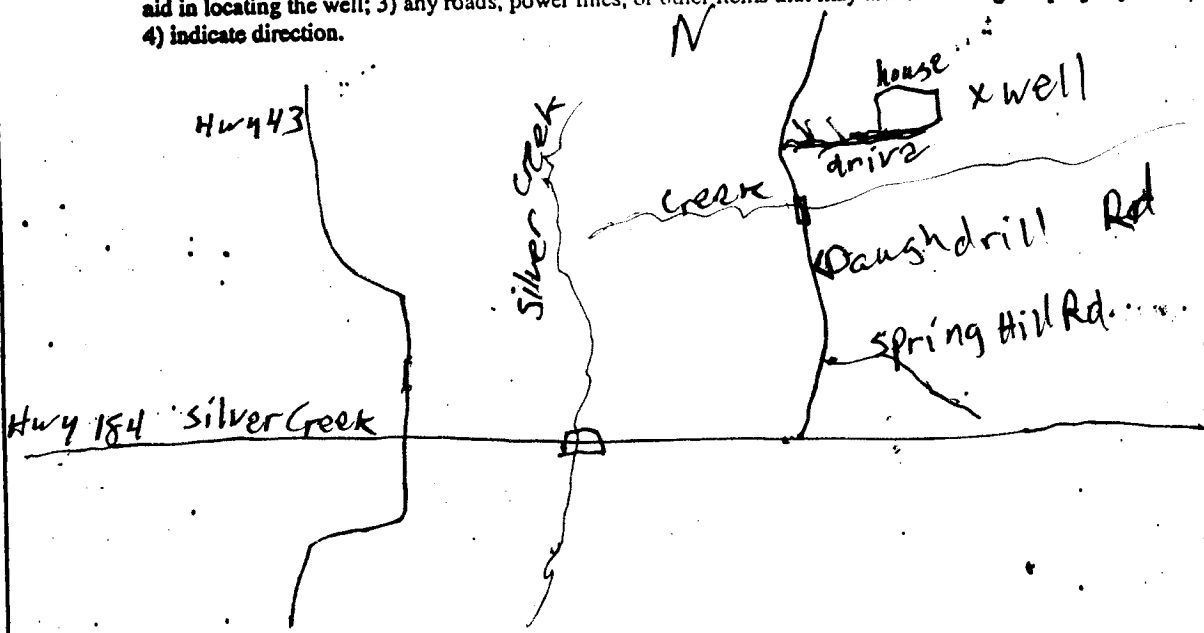 aid in locating the well; 3) any roads, power lines, or other items that may
4) indicate direction.
N
house
x well
Hwy 43
drive
Silver Creek
Creek
Daughdrill Rd
Spring Hill Rd.
Hwy 184 Silver Creek